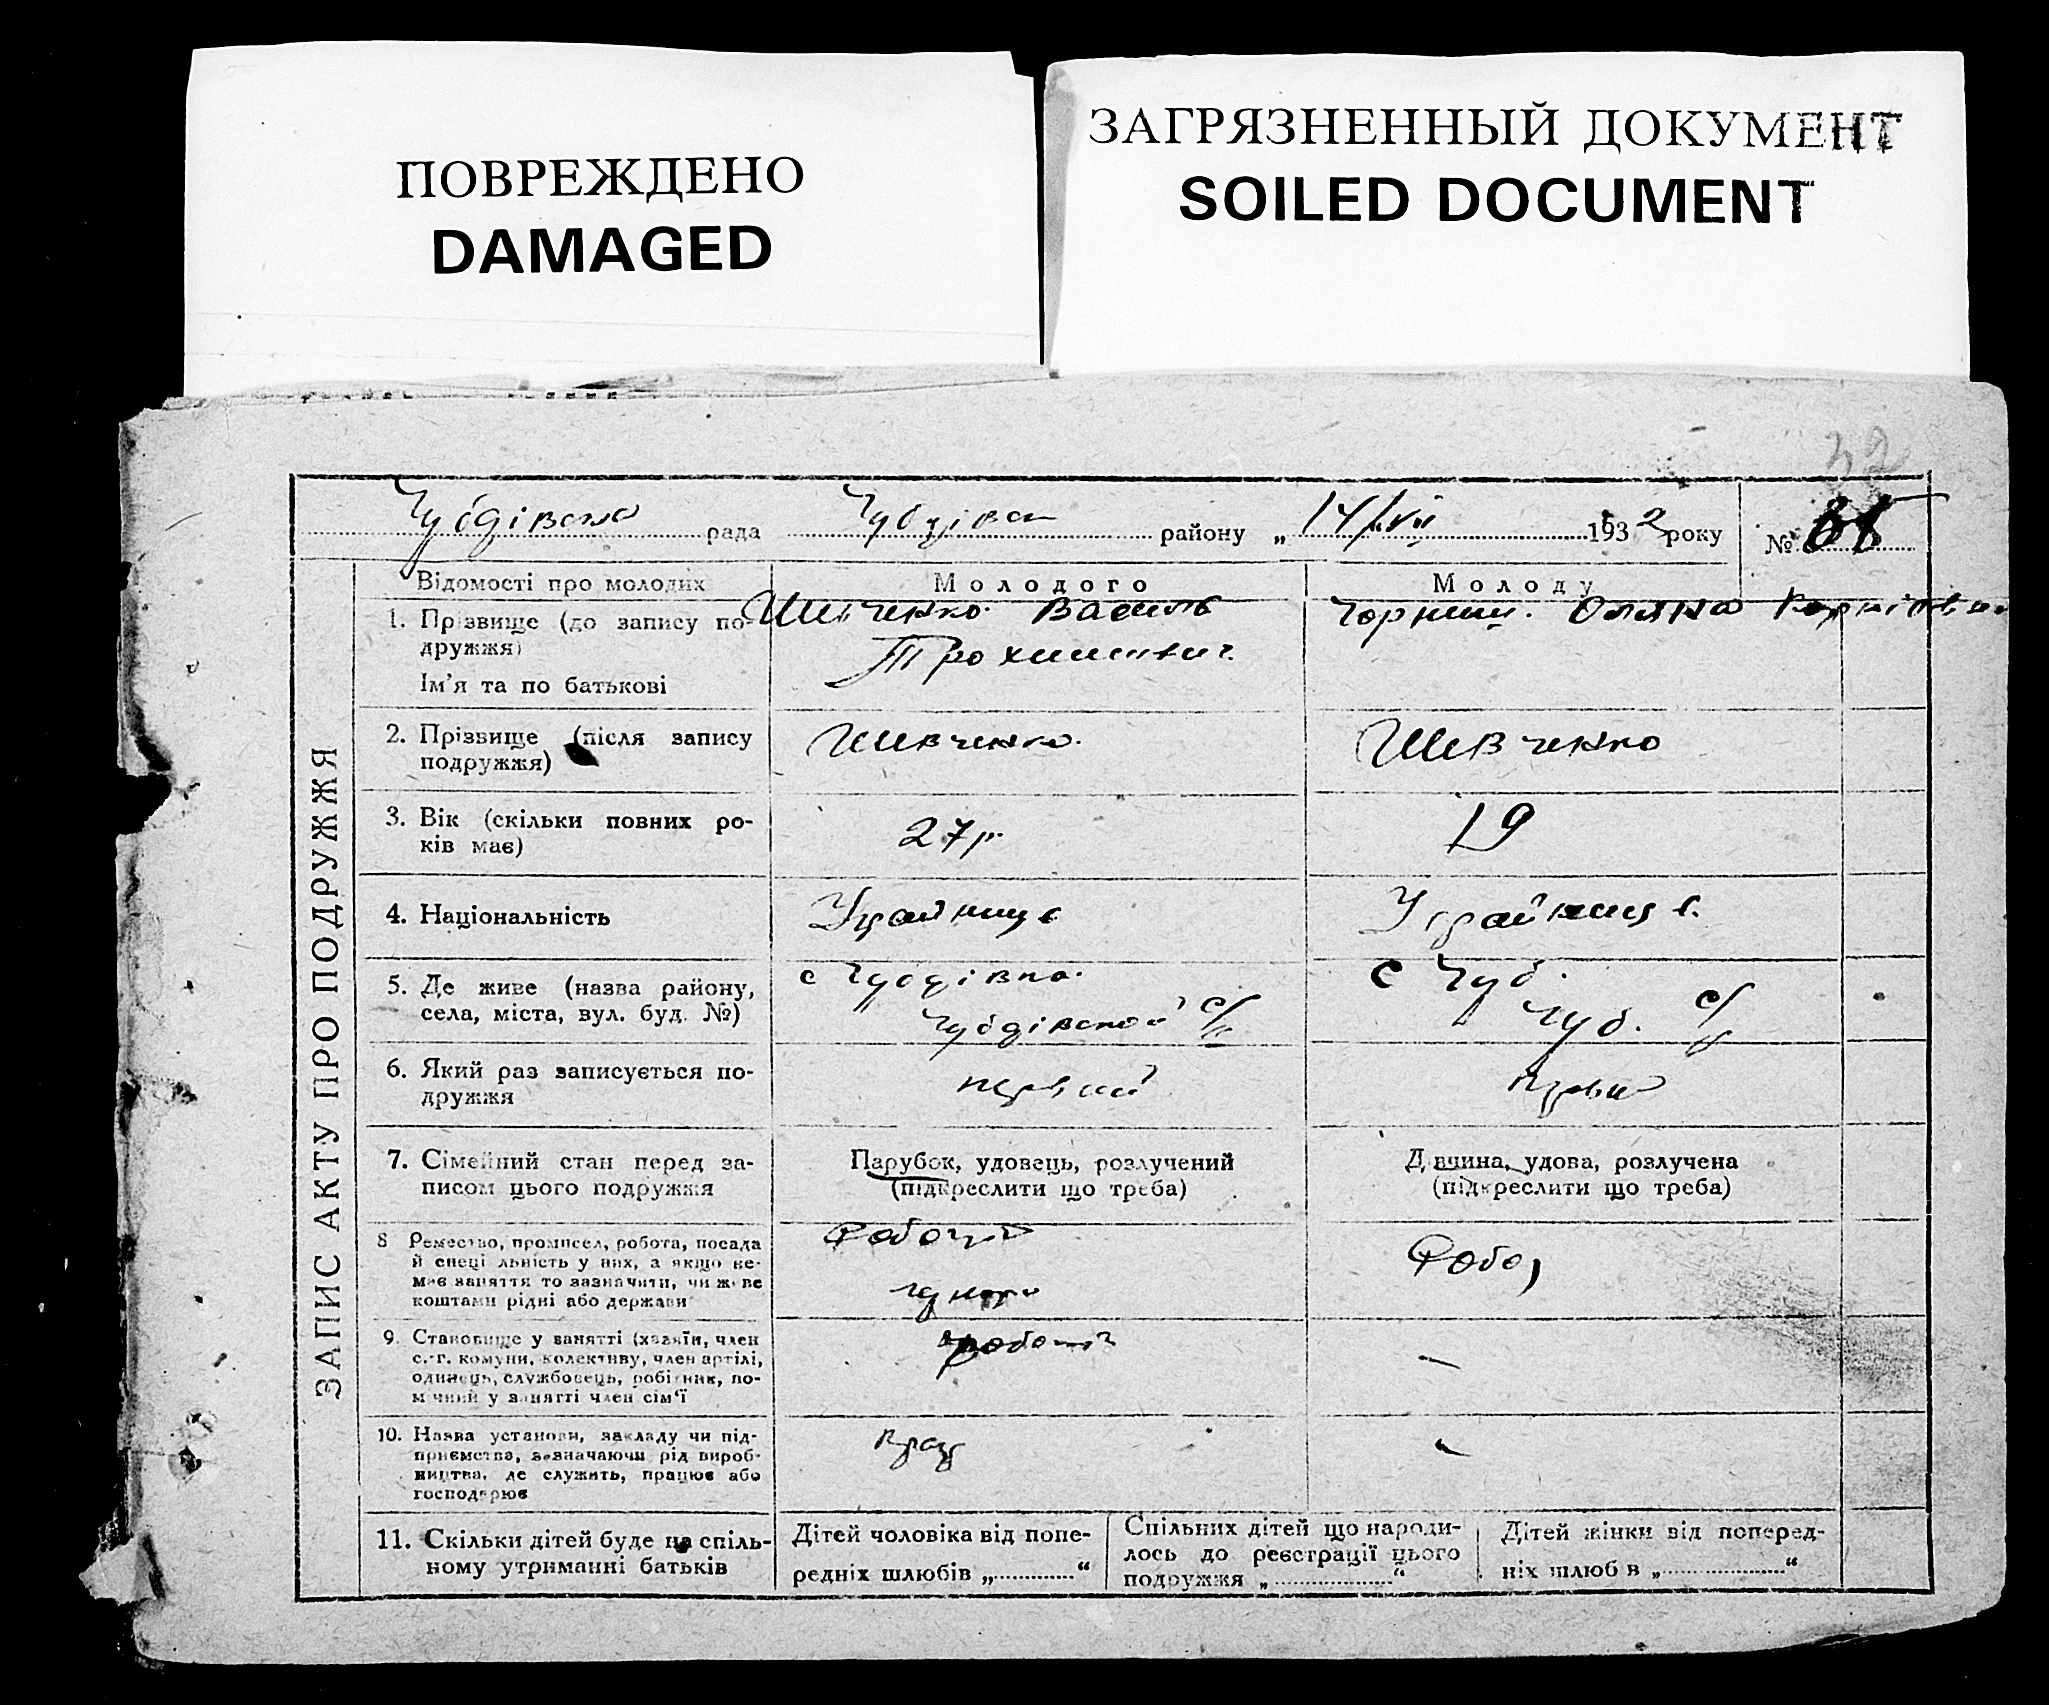 ПОВРЕЖДЕНО
DAMAGED
ЗАГРЯЗНЕННЫЙ ДОКУМЕНТ
SOILED DOCUMENT
32
рада району „ 14/VII 1932 року №
ЗАПИС АКТУ ПРО ПОДРУЖЖЯ
Відомості про молодих
Молодого
Молоду
1. Прізвище (до запису по-
дружжя)
Ім'я та по батькові
Шевченко Василь
Трохимович.
Оляна
2. Прізвище (після запису
подружжя)
Шевченко.
Шевченко
3. Вік (скільки повних ро-
ків має)
27 р.
19
4. Національність
5. Де живе (назва району,
села, міста, вул. буд. №)
с
с Чуб.
Чуб. с/
6. Який раз записується по-
дружжя
7. Сімейний стан перед за-
писом цього подружжя
Парубок, удовець, розлучений
(підкреслити що треба)
Дівчина, удова, розлучена
(підкреслити що треба)
8 Ремество, промисел, робота, посада
й спеціальність у них, а якщо не-
має заняття то зазначити, чи живе
коштами рідні або держави
Робочий
Робо
9. Становище у занятті (хазяїн, член
с.-г. комуни, колективу, член артілі,
одинець, службовець, робітник, по-
мічний у занятті член сім'ї
–
10. Назва установи, закладу чи під-
приємства, зазначаючи рід вироб-
ництва, де служить, працює або
господарює
–
11. Скільки дітей буде на спіль-
ному утриманні батьків
Дітей чоловіка від попе-
редніх шлюбів „............“
Спільних дітей що народи-
лось до реєстрації цього
подружжя „............“
Дітей жінки від поперед-
ніх шлюбів „............“